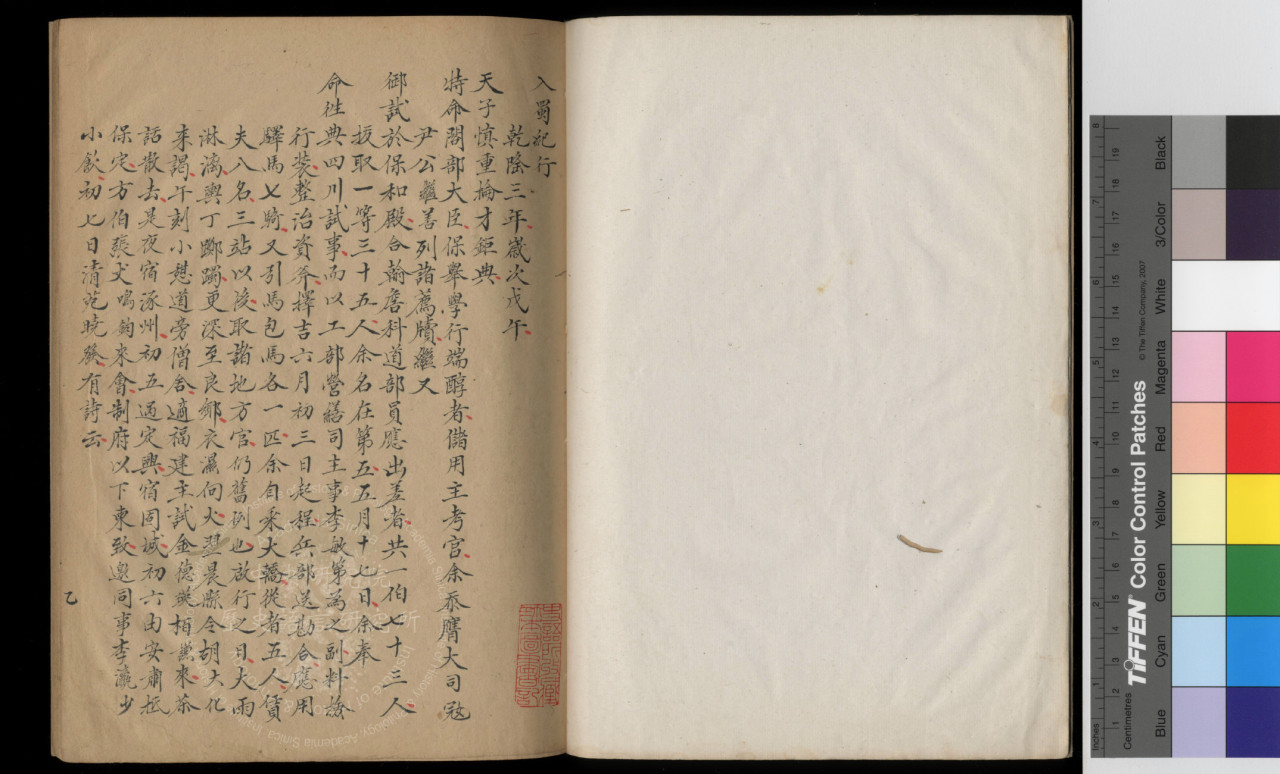 入蜀紀行
乾隆三年歲次戊午
天子慎重掄才鉅典
特命閣部大臣保舉學行端醇者儲用主考官余忝膺大司寇
尹公繼善列諸薦牘繼又
御試於保和殿合翰詹科道部員應出差者共一伯七十三人
拔取一等三十五人余名在第五五月十七日余奉
命往典四川試事而以工部營繕司主事李敏第為之副料檢
行裝整治資斧擇吉六月初三日起程兵部送勘合應用
驛馬七騎又引馬包馬各一匹余自乘大轎從者五人賃
夫八名三站以後取諸地方官仍舊例也啟行之日大雨
淋漓輿丁躑躅更深至良鄉衣濕向火翌晨縣令胡大化
來謁午刻小憇道旁僧舍適福建主試金德瑛栢蒿來茶
話散去是夜宿涿州初五過定興宿固城初六由安肅抵
保定方伯張犬鳴鈞來會制府以下柬致邀同事李瀛少
小飲初七日清苑曉發有詩云
乙
Blue
Cyan
Green
Yellow
Red
Magenta
White
3/Color
Black
TIFFEN® Color Control Patches
© The Tiffen Company, 2007
Centimetres
Inches